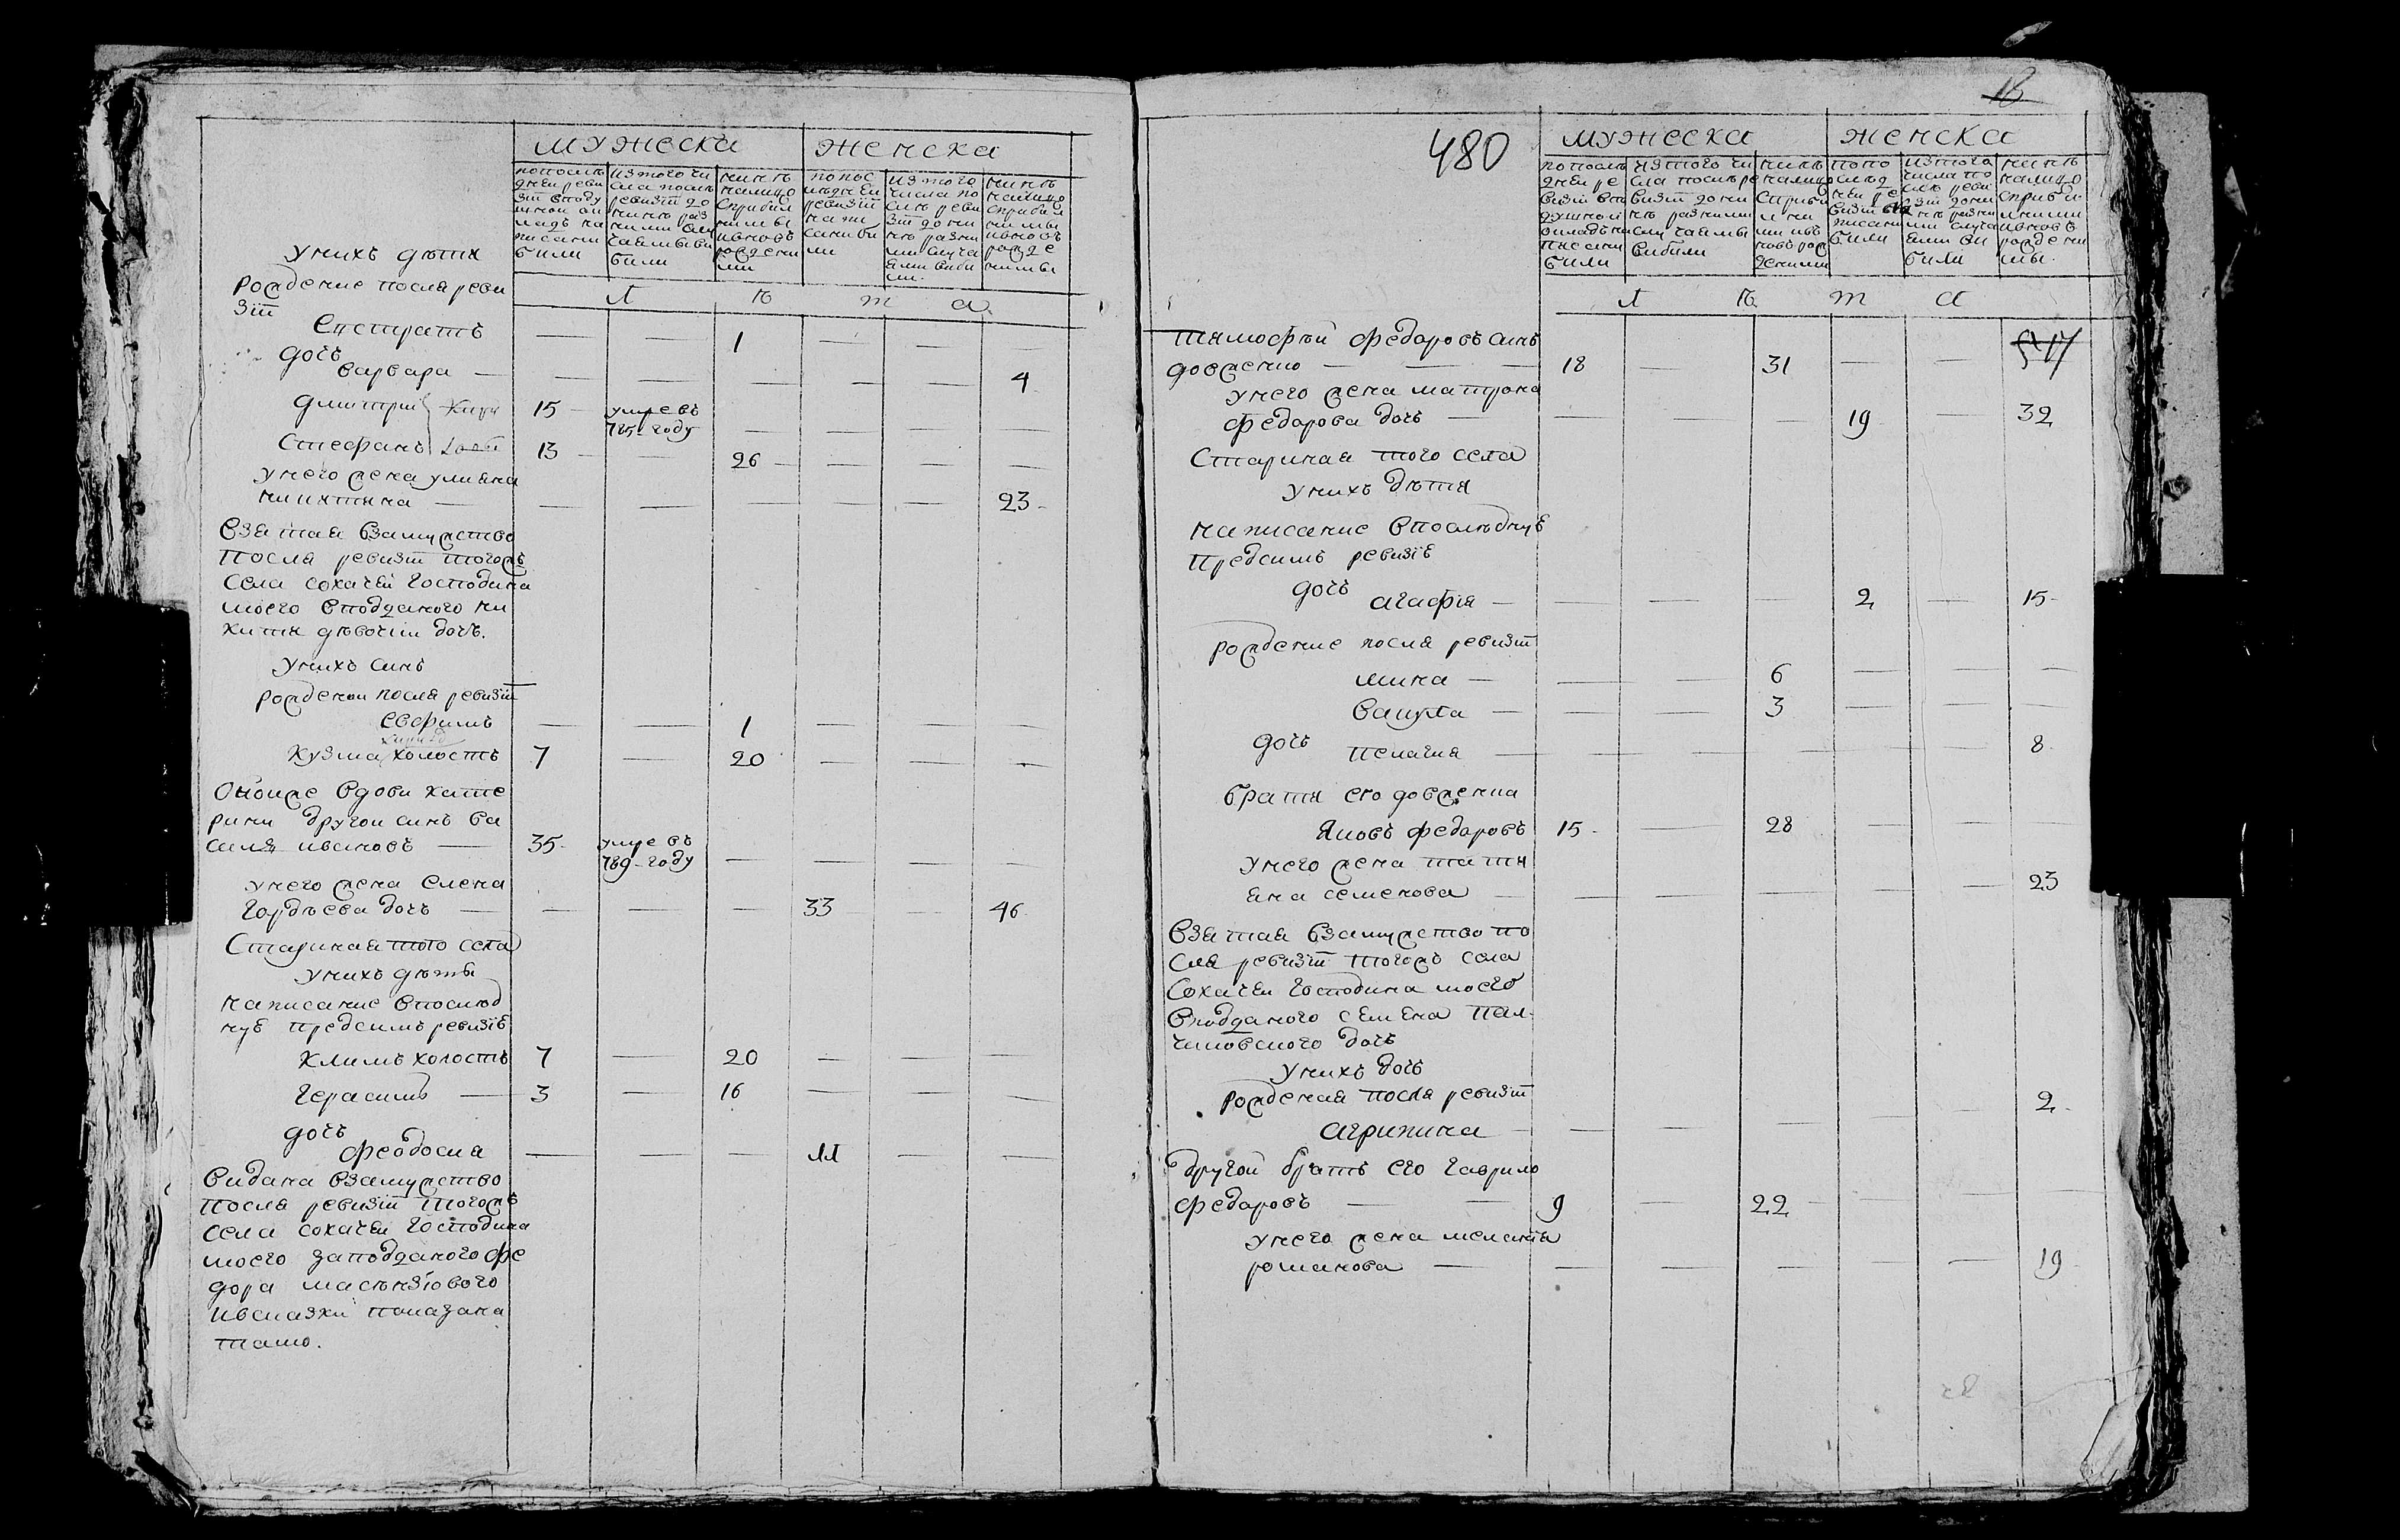 МУЖЕСКА ЖЕНСКА
по последней ревизіи в подушной окладъ написани били
из того числа после ревизіи до нинѣ разними случаями вибили
нинѣ налицо с прибилими и вновь рожденими
по последней ревизіи написани били
из того числа после ревизіи до нинѣ разними случаями вибили
нинѣ налицо с прибилими и вновь рожденими
Л ѣ т а
У нихъ дѣти
рождение после реви
зіи
Епстратъ — — 1 — — —
дочъ
варвара — — — — — — 4
дмитрий 15 умре въ
785 году — — — —
Стефанъ 13 — 26 — — —
у него жена улияна
никитина — — — — — — 23
Взятая взамужство
после ревизіи тогожъ
села сохачей господина
моего вподданого ни
кити дѣвочки дочъ.
У нихъ синъ
рожденои после ревизіи
Евфимъ — — 1 — — —
Кузма холостъ 7 — 20 — — —
Оноиже вдови кате
рини другои синъ ва
силя ивановъ — 35 умре въ
789 году — — — —
у него жена елена
Гордѣева дочъ — — — — 33 — 46
Стариная того села
у нихъ дѣти
написание в послѣд
нуѣ предсимъ ревизіѣ
Климъ холостъ 7 — 20 — — —
Герасимъ — 3 — 16 — — —
дочъ
феодосия — — — 11 — —
Видана взамужство
после ревизіи тогожъ
села сохачеи господина
моего за подданого фе
дора
и в сказки показана
тамо.
18
480
МУЖЕСКА ЖЕНСКА
по последней ревизіи в подушной окладъ написани били
из того числа после ревизіи до нинѣ разними случаями вибили
нинѣ налицо с прибилими и вновъ рожденими
по последней ревизіи написани били
из того числа после ревизіи до нинѣ разними случаями вибили
нинѣ налицо с прибилими и вновъ рожденими
Л ѣ т а
тимофѣи федоровъ синъ
довженко — — — 18 — 31 — —
у него жена матрона
федорова дочъ — — — — 19 — 32
Стариная того села
у нихъ дѣти
написание в послѣднуѣ
предсимъ ревизіѣ
дочъ агафія — — — — 2 — 15
рождение после ревизіи
мина — — — 6 — — —
вакула — — — 3 — — —
дочъ пелагия — — — — — — 8
брати его довженка
Яковъ федоровъ 15 — 28 — — —
у него жена тати
яна семенова — — — — — — 23
Взятая взамужство по
сля ревизіи тогожъ села
Сохачеи господина моего
вподданого семена пал
чиковского дочъ
у нихъ дочъ
рожденая после ревизіи
агрипина — — — — — — 2
другой братъ его гаврило
федоровъ — — 9 — 22 — — —
у него жена мелания
романова — — — — — — 19